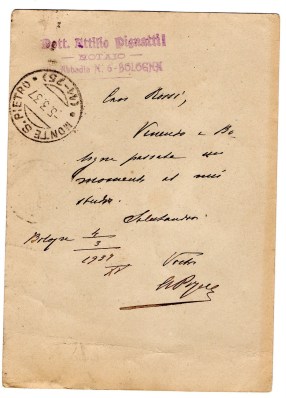 Dott. Attilio Pignatti
NOTAIO
Abbadia N. 6 - BOLOGNA
MONTE S. PIETRO * (14-25) *
5.3.37
Caro Rossi,
Venendo a Bo-
logna passate un
momento al mio
studio.
Salutandovi
Bologna 4/3
1937
XV
Vostro